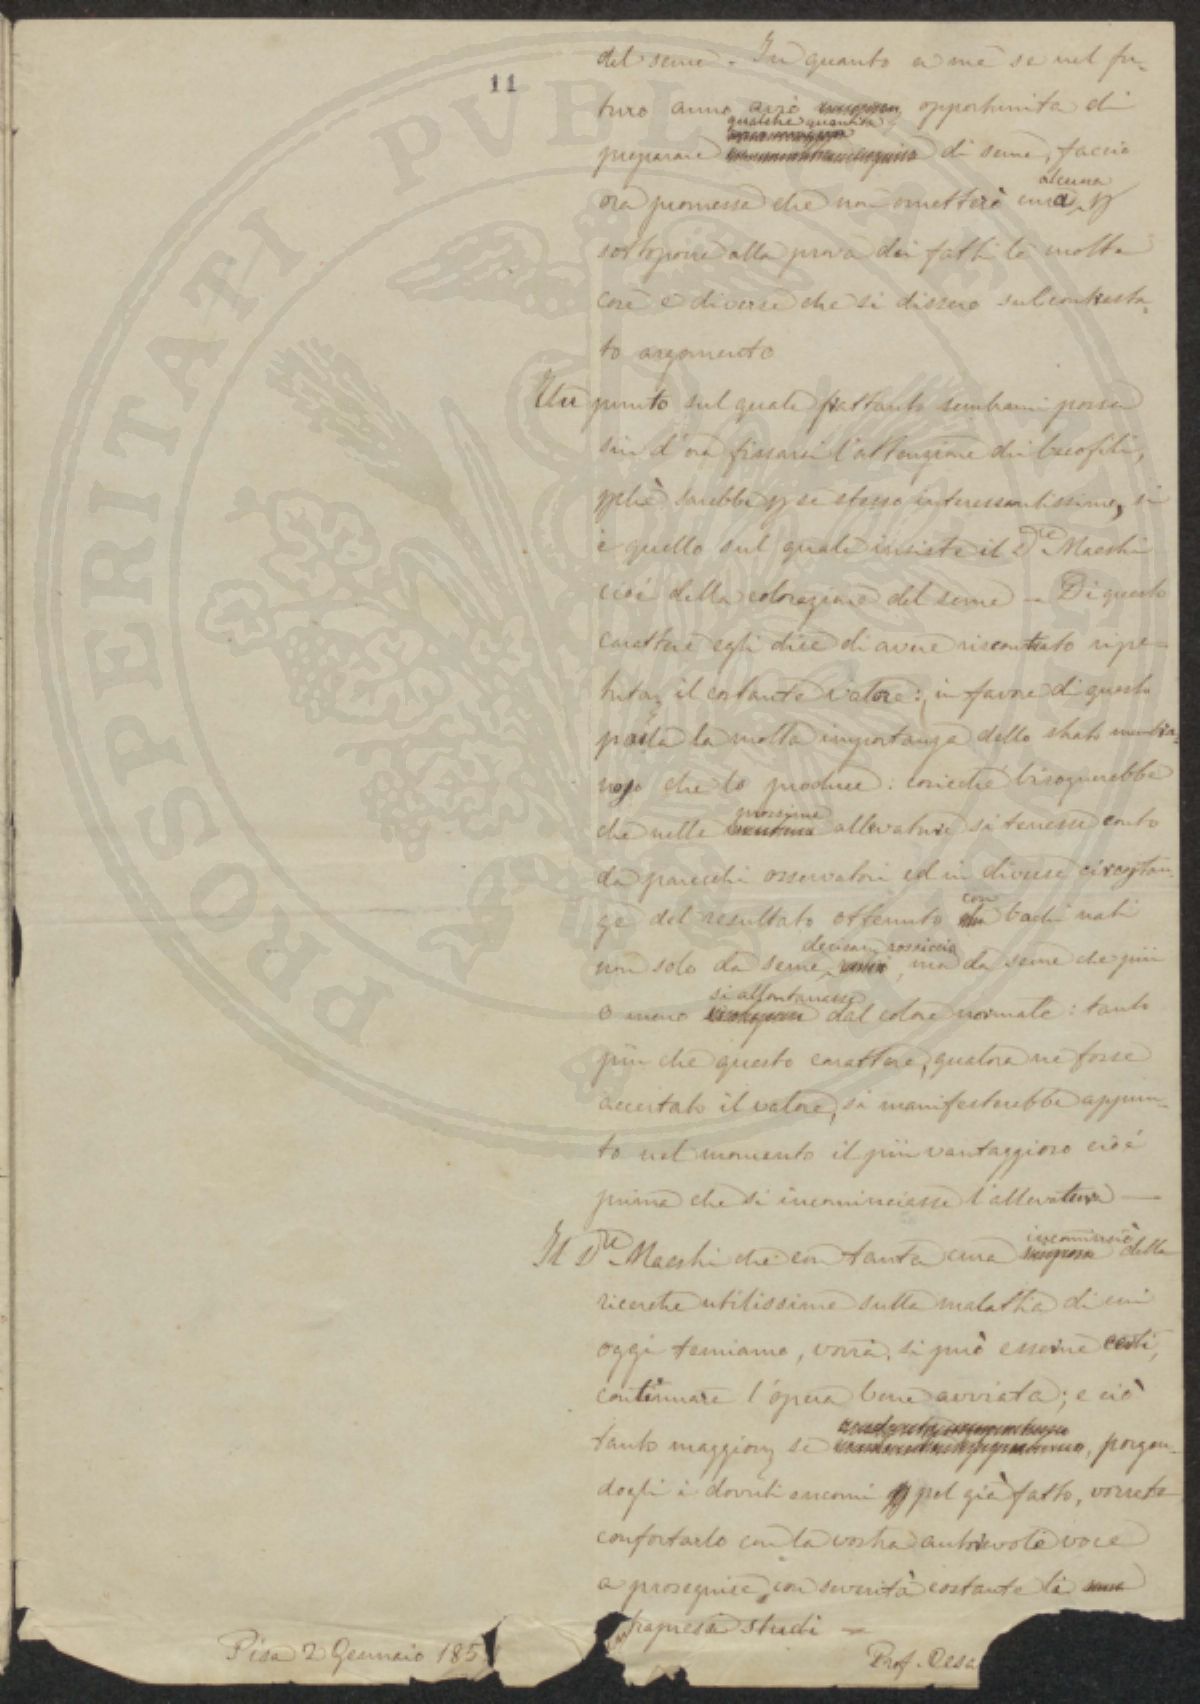 11
del seme. In quanto a me se nel fu-
turo anno avrò opportunità di
qualche quantità
preparare di seme, faccio
alcuna
ora promessa che non ometterò cura p
sottoporre alla prova dei fatti le molte
cose e diverse che si dissero sul contrasta-
to argomento
Un punto sul quale frattanto sembrami possa
sin d'ora fissarsi l'attenzione dei bacofili,
pchè sarebbe p se stesso interessantissimo, si
è quello sul quale insiste il Dre Maestri
cioè della colorazione del seme — Di questo
carattere egli dice di avere riscontrato ripe-
tutaz il costante valore: in favore di questo
parla la molta importanza dello strato membra-
noso che lo produce: cosicchè bisognerebbe
prossime
che nelle allevature si tenesse conto
da parecchi osservatori ed in diverse circostan-
con
ze del resultato ottenuto bachi nati
decisam rossiccio
non solo da seme, ma da seme che più
si allontanasse
o meno dal colore normale: tanto
più che questo carattere, qualora ne fosse
accertato il valore, si manifesterebbe appun-
to nel momento il più vantaggioso cioè
prima che si incominciasse l'allevatura —
incominciò
Il Dre Maestri che con tanta cura delle
ricerche utilissime sulla malattia di cui
oggi temiamo, vorrà, si può esserne certi,
continuare l'opera bene avviata; e ciò
tanto maggiorm se , porgen-
dogli i dovuti encomi pel già fatto, vorrete
confortarlo con la vostra autorevole voce
a proseguire con severità costante li
intrapresi studi —
Pisa 2 Gennaio 185
Prof. Cesa